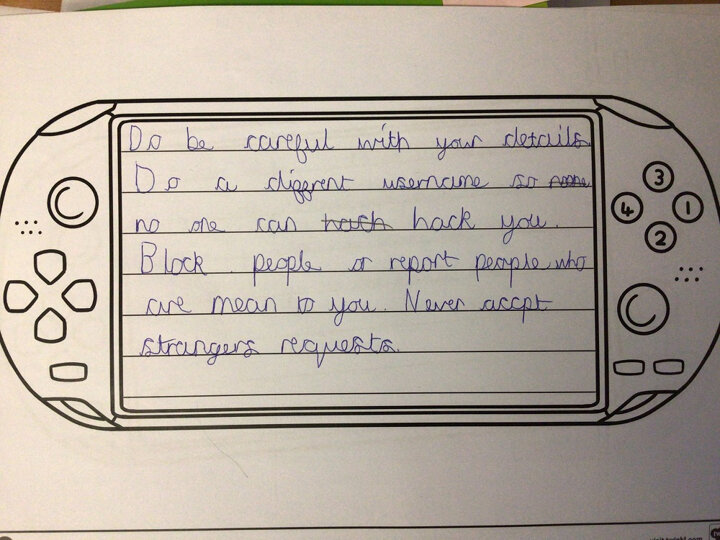 Do be careful with your details
Do a different username so
no one can hack you.
Block people or report people who
are mean to you. Never accpt
strangers requests.
3
4
1
2